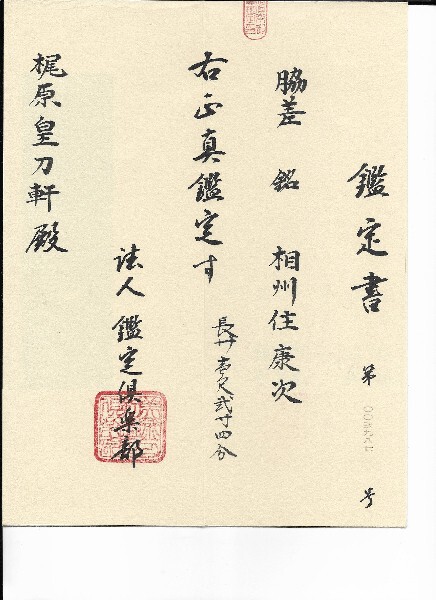 鑑定書 第 号
脇差 銘 相州住康次
右正真鑑定す
長サ壱尺弐寸四分
法人 鑑定倶楽部
梶原皇刀軒殿